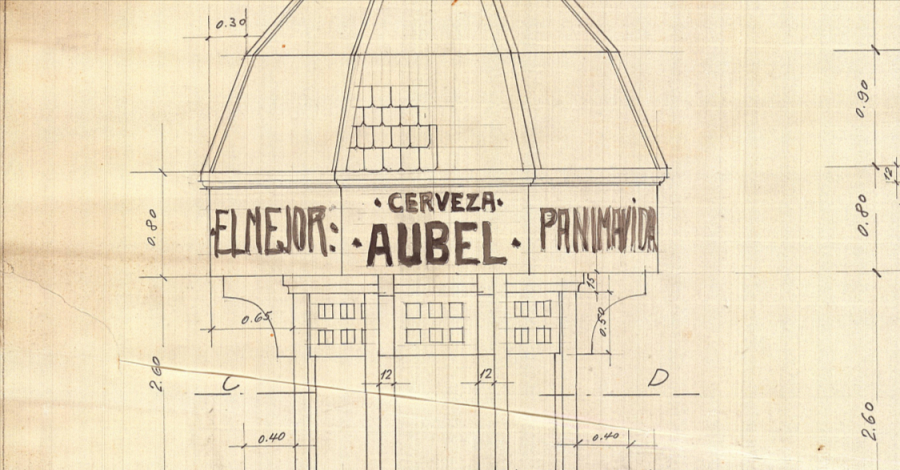 0.30
0.90
12
0.80
0.80
·ELMEJOR:
·CERVEZA·
·AUBEL·
PANIMAVIDA
15
0.65
0.50
2.60
12
12
C
D
0.40
0.40
2.60